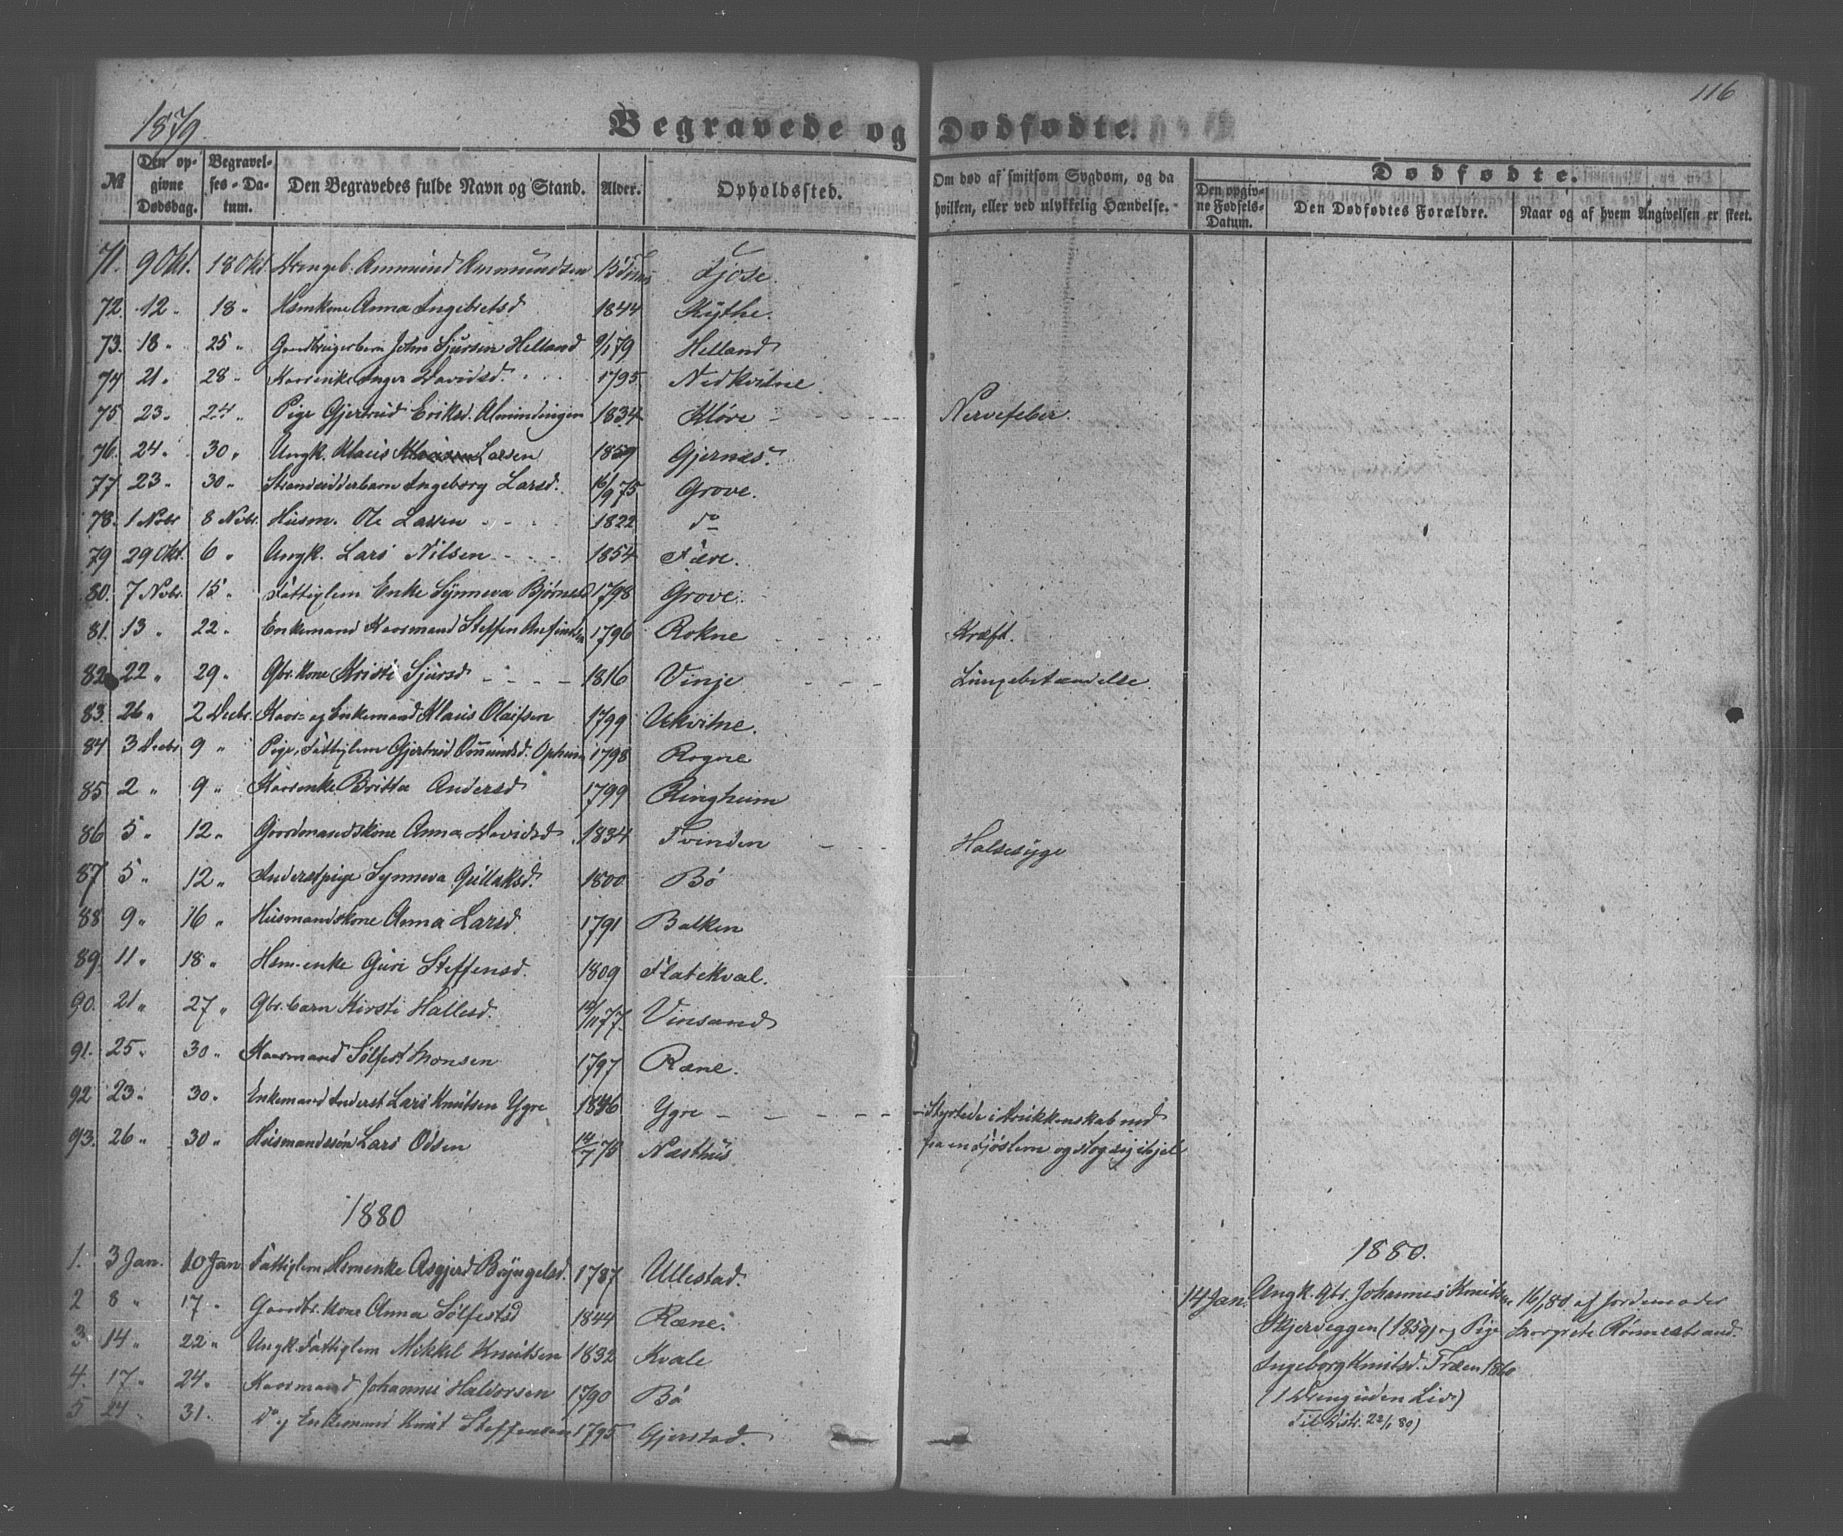 116
1879.
Begravede og Dødfødte.
№ Den opgivne Dødsdag. Begravelses-Datum. Den Begravedes fulde Navn og Stand. Alder. Opholdssted. Om død af smitsom Sygdom, og da hvilken, eller ved ulykkelig Hændelse. Den opgivne Fødsels-Datum. Dødfødte. Den Dødfødtes Forældre. Naar og af hvem Angivelsen er skeet.
71. 9 Okt. 18 Okt. Drengeb. Ammund Ammundsen Gjose
72. 12 " 18 " Hsmkone Anna Ingebretsd 1844 Kythe.
73. 18 " 25 " Gaardbrugerbarn John Sjursen Helland 9/1 79 Helland
74 21 " 28 " Kaarenke Inger Davidsd. 1795 Nedkvitne
75. 23 " 24 " Pige Gjertrud Eriksd. Almindingen 1834 Kløve Nervefeber.
76. 24 " 30 " Ungk. Klaus Larsen 1859 Gjernæs.
77 23 " 30 " Strandsidderbarn Ingeborg Larsd. 16/9 75 Grove.
78. 1 Nobr 8 Nobr. Husm. Ole Larsen 1822 do
79 29 Okt. 6 " Ungk. Lars Nilsen 1854 Fære.
80. 7 Nobr 15 " Fattiglem Enke Synneva Bjørnsd 1798 Grove.
81. 13 " 22 " Enkemand Kaarmand Steffen Arfindsen 1796 Rokne Kræft.
82 22 " 29 " Gbr. kone Kristi Sjursd 1816 Vinje Lungebetændelse.
83. 26 " 2 Decbr. Kaar- og Enkemand Klaus Olaifsen 1799 Ukvitne.
84 3 Decbr 9 " Pige, Fattiglem Gjertrud Omundsd. Opheim 1798 Rogne
85. 2 " 9 " Kaarenke Britta Andersd 1799 Ringheim
86 5 " 12 " Gaardmandskone Anna Davidsd 1834 Tvinden Halsesyge
87 5 " 12 " Inderstpige Synneva Gullaksd. 1800 Bø
88 9 " 16 " Husmandskone Anna Larsd. 1791 Balken
89. 11 " 18 " Hsm-enke Guri Steffensd. 1809 Flatekval.
90. 21 " 27 " Gbr. barn Kirsti Hallesd. 12/11 77. Vinsand
91. 25 " 30 " Kaarmand Sølfest Monsen 1797 Ræne.
92 23 " 30 " Enkemand Inderst Lars Knutsen Ygre 1846 Ygre Styrtede i Drukkenskab ned
93. 26 " 30 " Husmandssøn Lars Odsen 14/7 78 Næsthus fra en Fjøslem og slog sig ihjel
1880
1. 3 Jan. 10 Jan Fattiglem Hsmenke Asgjerd Bryngelsd. 1787 Ullestad.
2 8 " 17 " Gaardbr. kone Anna Sølfestsd 1844 Ræne.
3 14 " 22 " Ungk. Fattiglem Mikkel Knutsen 1832 Kvale
4. 17 " 24 " Kaarmand Johannes Haldorsen 1790 Bø
5 24 " 31. do og Enkemand Knut Steffensen 1795 Gjerstad.
1880.
14 Jan. Ungk. gbr. Johannes Knutsen 16/1 80 af Jordemoder
Skjerveggen (1859) og Pige Margrete Rønnestrand.
Ingeborg Knutsd. Træen 1860
(1 Dreng uden Liv)
Til Distr. 22/1 80)